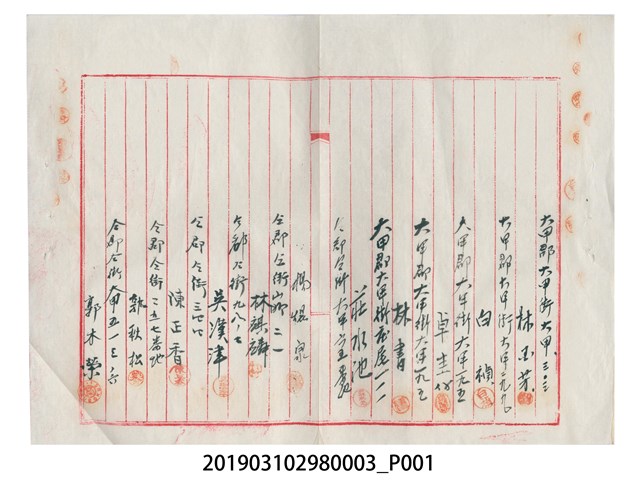 大甲郡大甲街大甲三〇三
林玉芽
大甲郡大甲街大甲二九九
白禎
大甲郡大甲街大甲一九五
卓生
大甲郡大甲街大甲一九五
林書
大甲郡大甲街庄尾一一
莊水池
仝郡仝街大甲六五
楊焜泉
仝郡仝街山脚二二
林麒麟
仝郡仝街九八ノ七
吳漢津
仝郡仝街三四四
陳正香
仝郡仝街二五七番地
郭秋松
仝郡仝街大甲五一三ノ六
郭木榮
201903102980003_P001